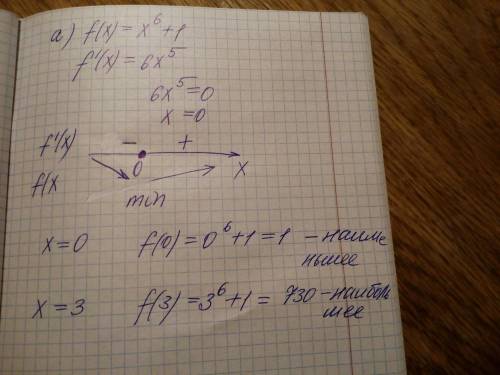 а) f(x) = x⁶+1
f'(x) = 6x⁵
6x⁵=0
x=0
f'(x) − +
0 x
f(x
min
x=0 f(0) = 0⁶+1=1 − наиме
ньшее
x=3 f(3) = 3⁶+1= 730 − наиболь
шее